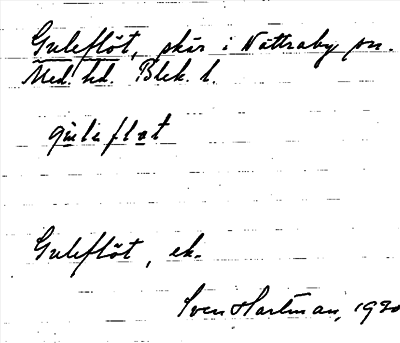 Guleflöt, skär i Nättraby sn.
Med. hd. Blek. l.
Guleflöt, ek.
Sven Hartman, 1930